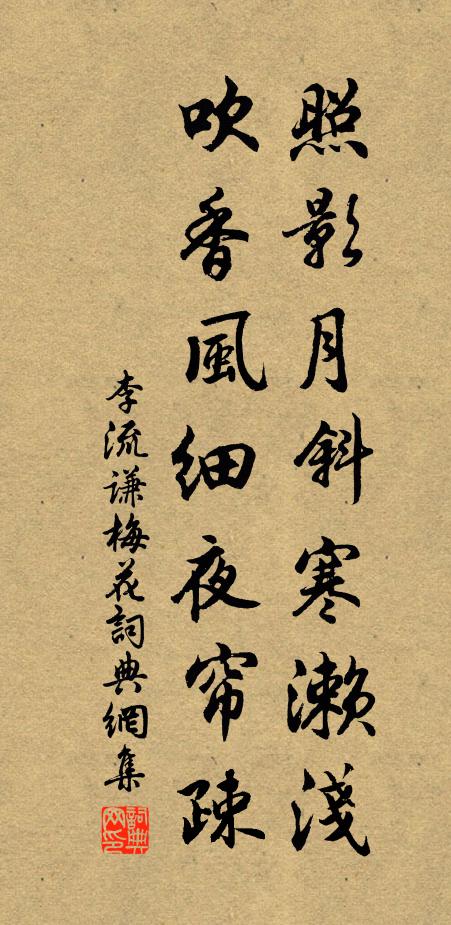 照影月斜寒濑淺
吹香風細夜帘疎
李流谦梅花詞典網集
詞典網印